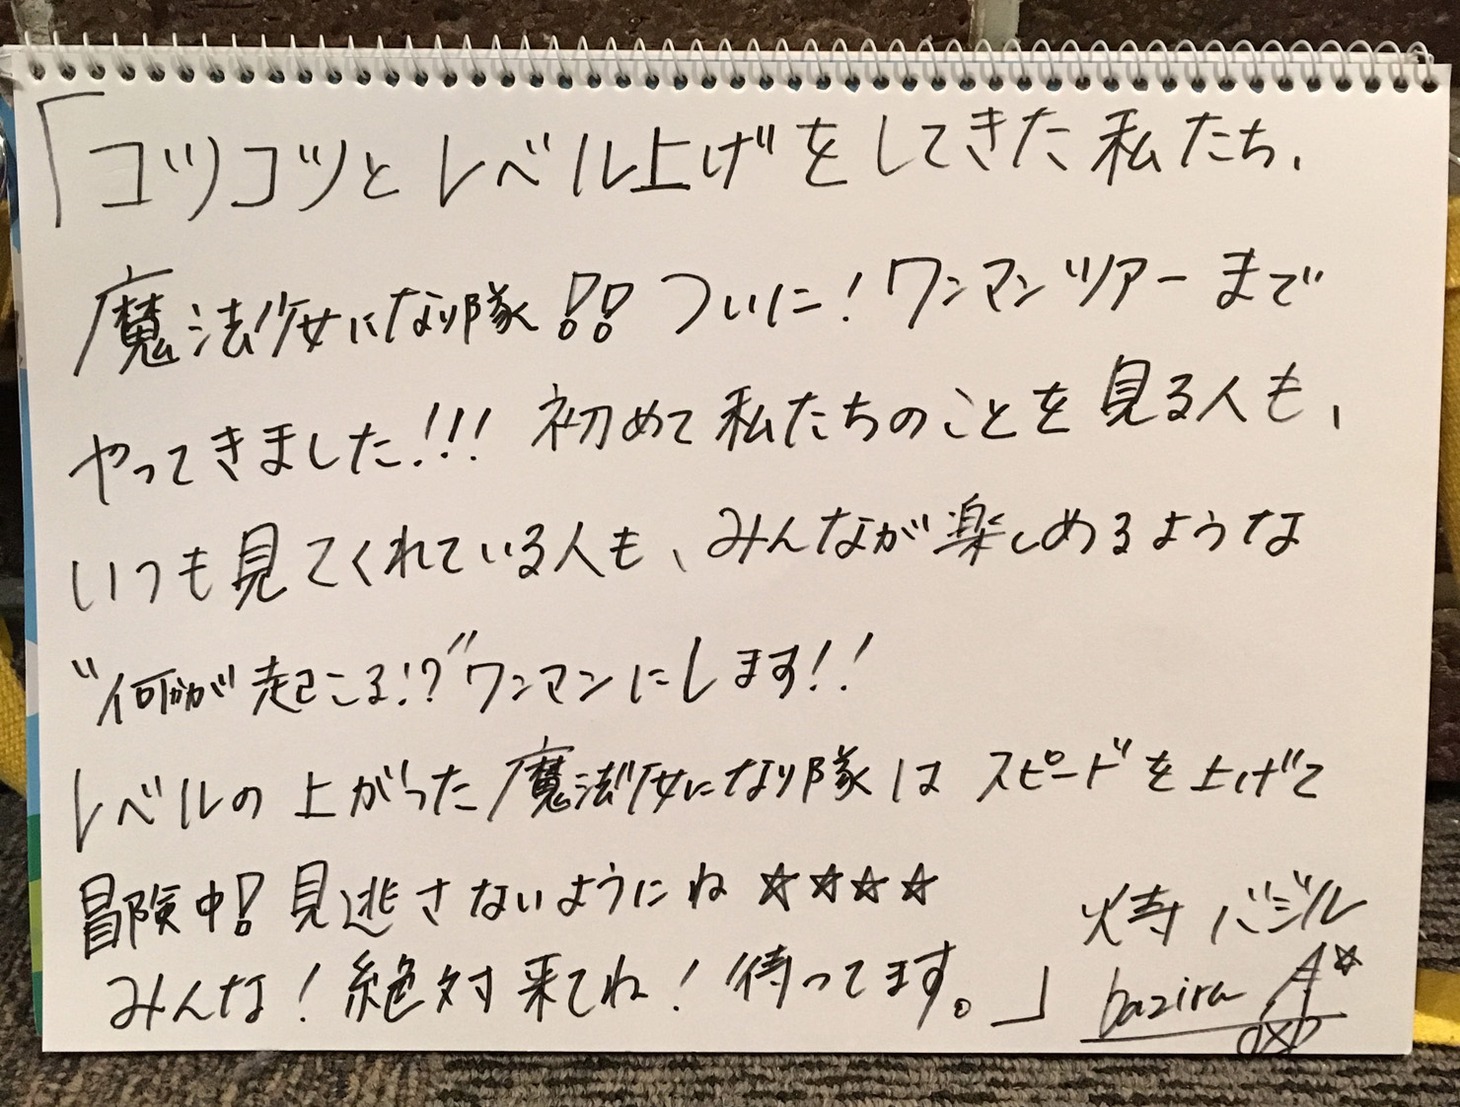 「コツコツとレベル上げをしてきた私たち、
魔法少女になり隊!! ついに! ワンマンツアーまで
やってきました!!! 初めて私たちのことを見る人も、
いつも見てくれている人も、みんなが楽しめるような
"何が起こる!?"ワンマンにします!!
レベルの上がった魔法少女になり隊は スピードを上げて
冒険中! 見逃さないようにね ☆☆☆☆
みんな! 絶対来てね! 待ってます。」
火寺 バジル
bazira